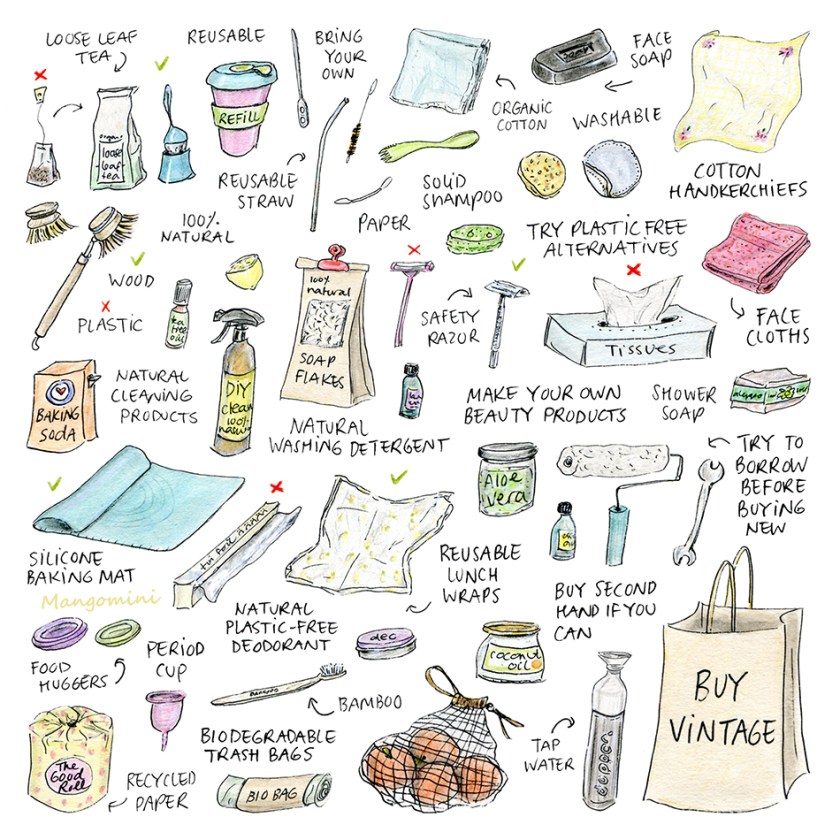 LOOSE LEAF
TEA
REUSABLE
BRING
YOUR
OWN
FACE
SOAP
ORGANIC
COTTON
WASHABLE
REFILL
organic
loose
leaf
tea
REUSABLE
STRAW
SOLID
SHAMPOO
COTTON
HANDKERCHIEFS
PAPER
100%
NATURAL
TRY PLASTIC FREE
ALTERNATIVES
WOOD
PLASTIC
tea
tree
oil
100%
natural
SOAP
FLAKES
SAFETY
RAZOR
TISSUES
FACE
CLOTHS
BAKING
SODA
NATURAL
CLEANING
PRODUCTS
DIY
clean
100%
NATURAL
WASHING DETERGENT
MAKE YOUR OWN
BEAUTY PRODUCTS
SHOWER
SOAP
Aloe
vera
TRY TO
BORROW
BEFORE
BUYING
NEW
SILICONE
BAKING MAT
Mangomini
REUSABLE
LUNCH
WRAPS
NATURAL
PLASTIC-FREE
DEODORANT
deo
BUY SECOND
HAND IF YOU
CAN
FOOD
HUGGERS
PERIOD
CUP
coconut
oil
BAMBOO
BAMBOO
BUY
VINTAGE
BIODEGRADABLE
TRASH BAGS
TAP
WATER
dopper
The
Good
Roll
RECYCLED
PAPER
BIO BAG